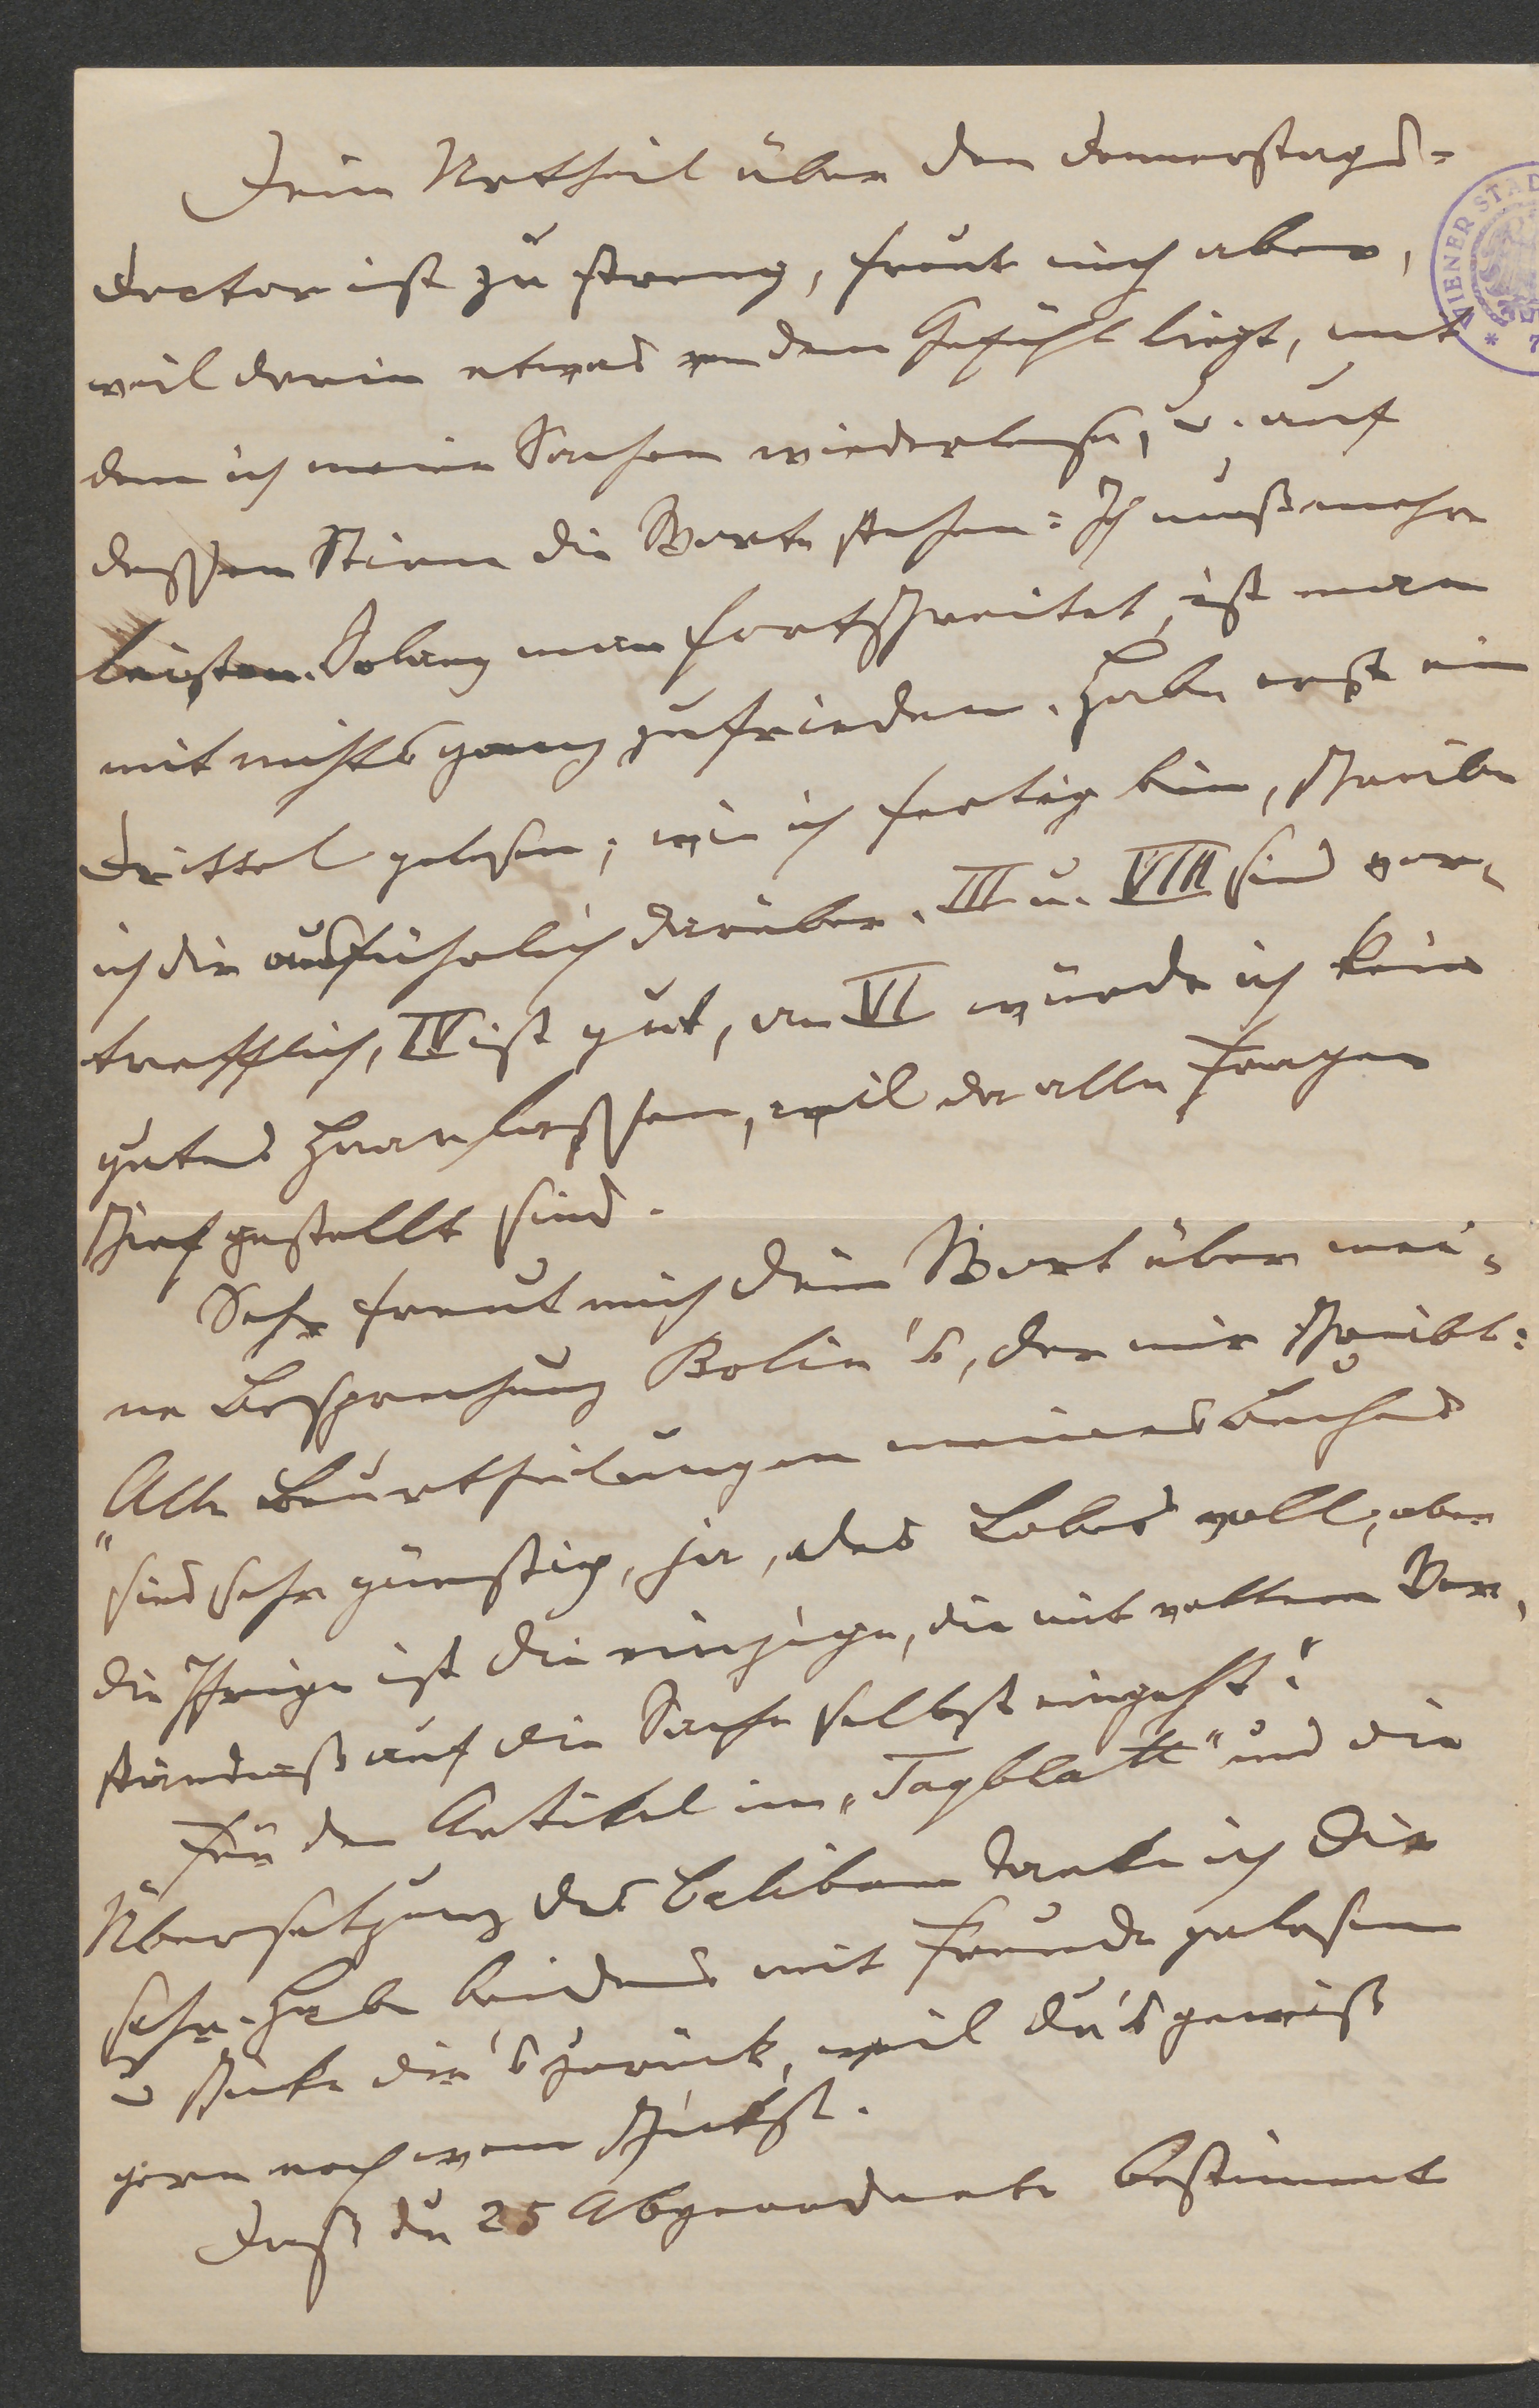 Dein Urtheil über den Donnerstags-
doctor ist zu streng, freut mich aber,
weil darin etwas von dem Gefühl liegt, mit
dem ich meine Sachen wiederlese, u. auf
dessen Stirne die Worte stehen: Ich muß mehr
leisten. Solang man fortschreitet, ist man
mit nichts ganz zufrieden. Habe erst ein
Drittel gelesen; wie ich fertig bin, schreibe
ich dir ausführlich darüber. III u. VIII sind vor-
trefflich, IV ist gut, an VI würde ich kein
gutes Haar lassen, weil da alle Fragen
schief gestellt sind.
Sehr freut mich dein Wort über mei-
ne Besprechung Bolin's, der mir schreibt:
"Alle Beurtheilungen meines Buches
sind sehr günstig, ja, des Lobes voll, aber
die Ihrige ist die einzige, die mit vollem Ver-
ständniß auf die Sache selbst eingeht."
Für den Artikel im „Tagblatt" und die
Übersetzung des Caliban danke ich Dir
sehr. Habe beides mit Freude gelesen
u schicke dir's zurück, weil du's gewiß
gern noch wem schickst.
Daß du 25 Abgeordnete bestimmt
WIENER STAD